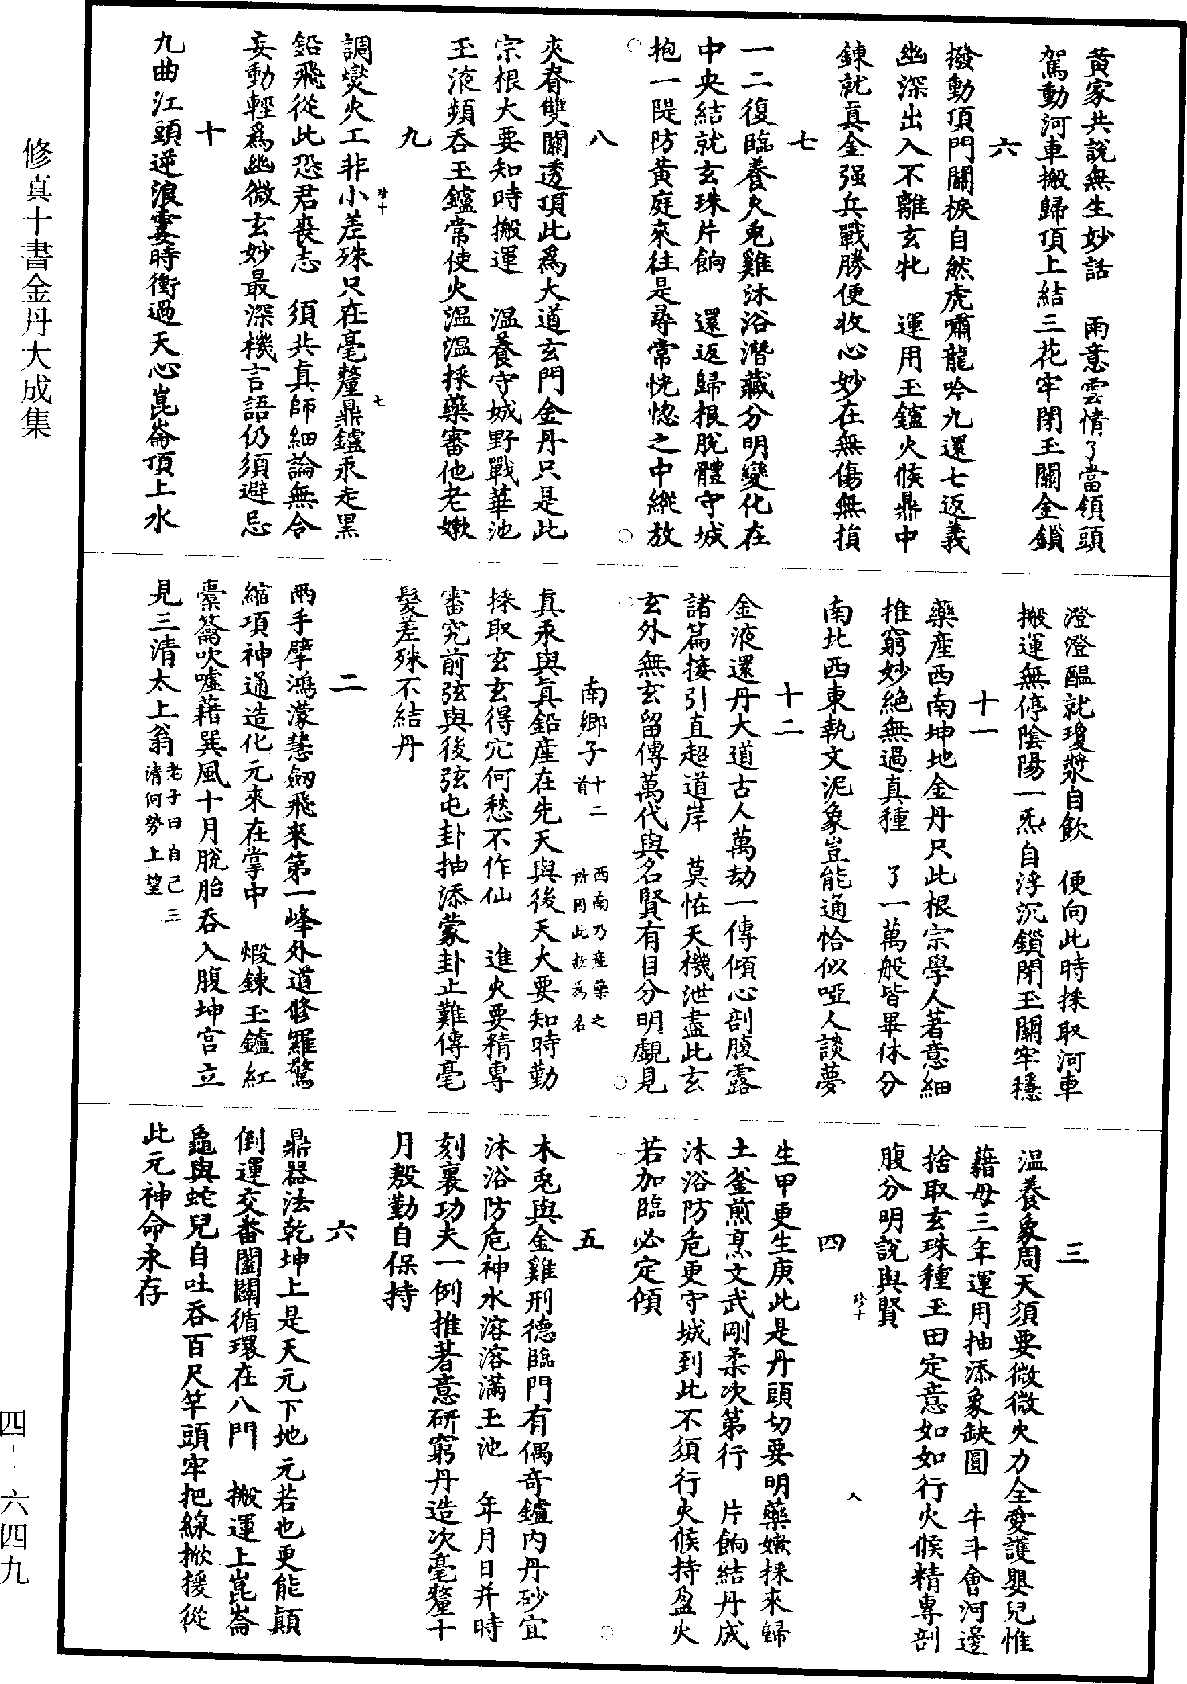 黄家共說無生妙話　雨意雲情了當領頭
駕動河車搬歸頂上結三花牢閉玉關金鎖
六
撥動頂門關捩自然虎嘯龍吟九還七返義
幽深出入不離玄牝　運用玉鑪火候鼎中
鍊就真金强兵戰勝便收心妙在無傷無損
七
一二復臨養火兔雞沐浴潛藏分明變化在
中央結就玄珠片餉　還返歸根脫體守城
抱一隄防黄庭來往是尋常恍惚之中縱放
八
夾脊雙關透頂此爲大道玄門金丹只是此
宗根大要知時搬運　溫養守城野戰華池
玉液頻吞玉鑪常使火溫溫採藥審他老嫩
九
調燮火工非小差殊只在毫釐鼎鑪汞走黑
鉛飛從此恐君喪志　須共真師細論無令
妄動輕爲幽微玄妙最深機言語仍須避忌
十
九曲江頭逆浪霎時衝過天心崑崙頂上水
澄澄醖就瓊漿自飲　便向此時採取河車
搬運無停陰陽一炁自浮沉鎖閉玉關牢穩
十一
藥產西南坤地金丹只此根宗學人著意細
推窮妙絕無過真種　了一萬般皆畢休分
南北西東執文泥象豈能通恰似啞人談夢
十二
金液還丹大道古人萬劫一傳傾心剖腹露
諸篇接引直超道岸　莫怪天機泄盡此玄
玄外無玄留傳萬代與名賢有目分明覷見
南鄉子十二首　西南乃產藥之所因此立爲名
真汞與真鉛產在先天與後天大要知時勤
採取玄玄得穴何愁不作仙　進火要精專
審究前弦與後弦屯卦抽添蒙卦止難傳毫
髮差殊不結丹
二
兩手擘鴻濛慧劒飛來第一峰外道修羅驚
縮項神通造化元來在掌中　煅鍊玉鑪紅
橐籥吹噓藉巽風十月脫胎吞入腹坤宮立
見三清太上翁老子曰自己三清何勞上望
三
溫養象周天須要微微火力全愛護嬰兒惟
藉母三年運用抽添象缺圓　牛斗會河邊
捨取玄珠種玉田定意如如行火候精專剖
腹分明說與賢
四
生甲更生庚此是丹頭切要明藥嫩採來歸
土釜煎烹文武剛柔次第行　片餉結丹成
沐浴防危更守城到此不須行火候持盈火
若加臨必定傾
五
木兎與金雞刑德臨門有偶奇鑪內丹砂宜
沐浴防危神水溶溶滿玉池　年月日并時
刻裏功夫一例推著意研窮丹造次毫釐十
月殷勤自保持
六
鼎器法乾坤上是天元下地元若也更能顛
倒運交番闔闢循環在八門　搬運上崑崙
龜與蛇兒自吐吞百尺竿頭牢把線掀援從
此元神命永存
修真十書金丹大成集
四-六四九